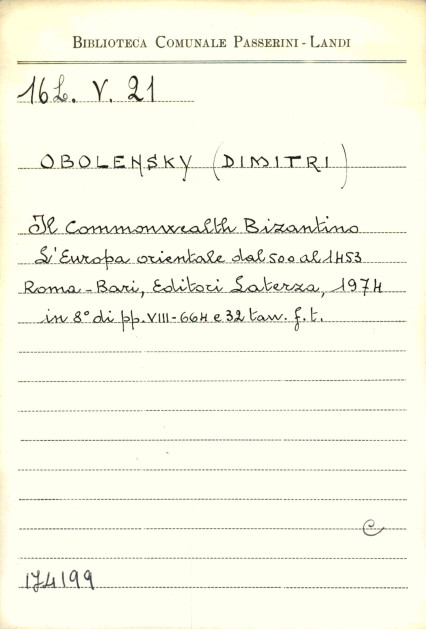 BIBLIOTECA COMUNALE PASSERINI - LANDI
16L. V. 21
OBOLENSKY (DIMITRI)
Il Commonwealth Bizantino
L'Europa orientale dal 500 al 1453
Roma - Bari, Editori Laterza, 1974
in 8° di pp. VIII-664 e 32 tav. f. t.
C
174199